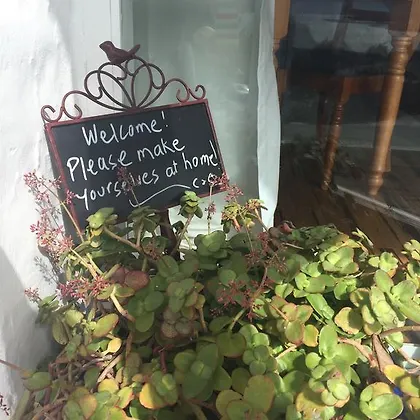 Welcome!
Please make
yourselves at home!